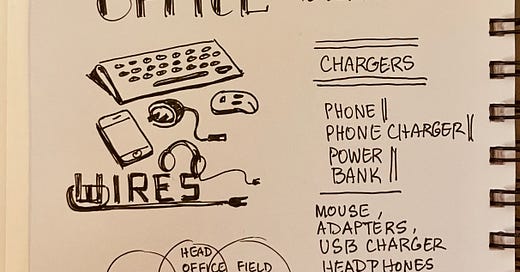 OFFICE
CHARGERS
PHONE
PHONE CHARGER
POWER
BANK
WIRES
MOUSE,
ADAPTERS,
USB CHARGER
HEADPHONES
HEAD
OFFICE
FIELD